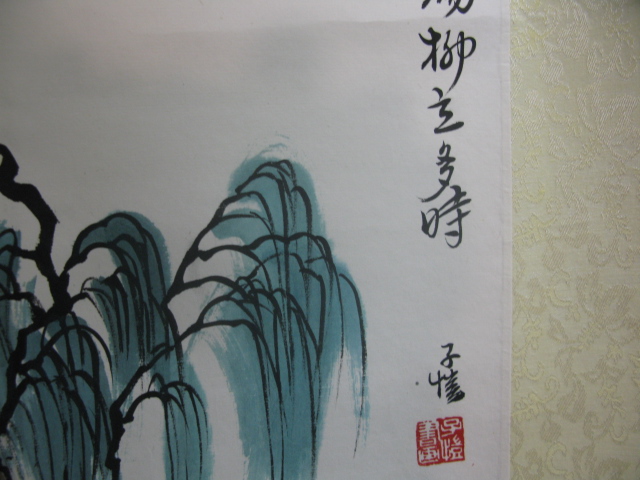 楊柳立多時
子愷
子愷書畫